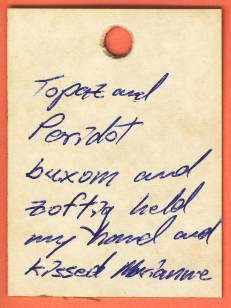 Topaz and
Peridot
buxom and
zoftig held
my hand and
kissed Marianne